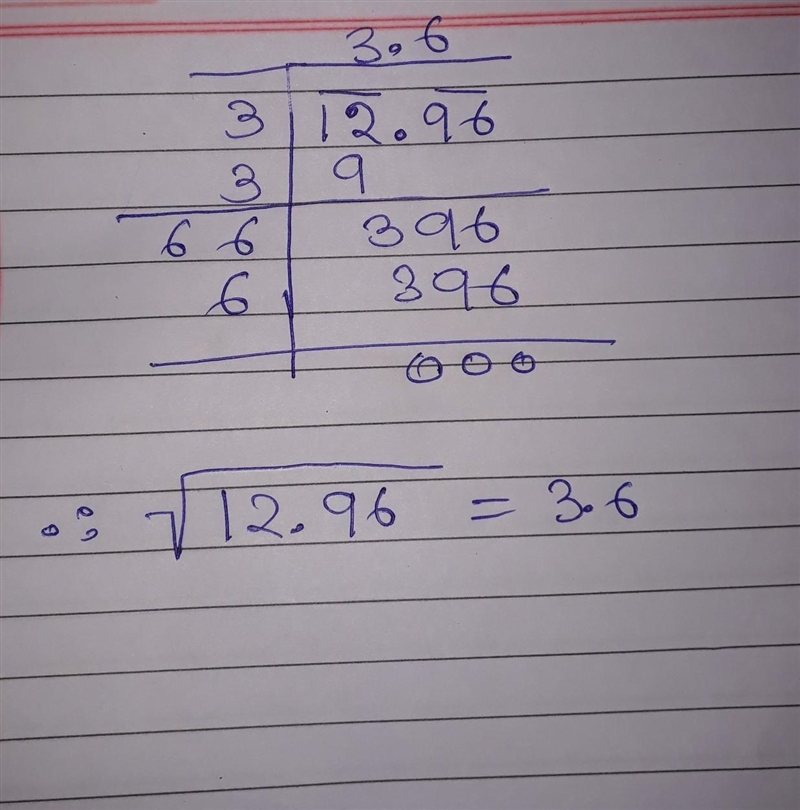 3.6
3 12.96
3 9
66 396
6 396
000
∴ √12.96 = 3.6